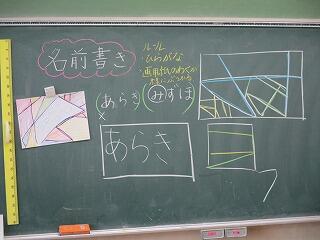 名前書き
ルール
・ひらがな
・画用紙のわくが
(あらき)
×
(みずほ)
あらき